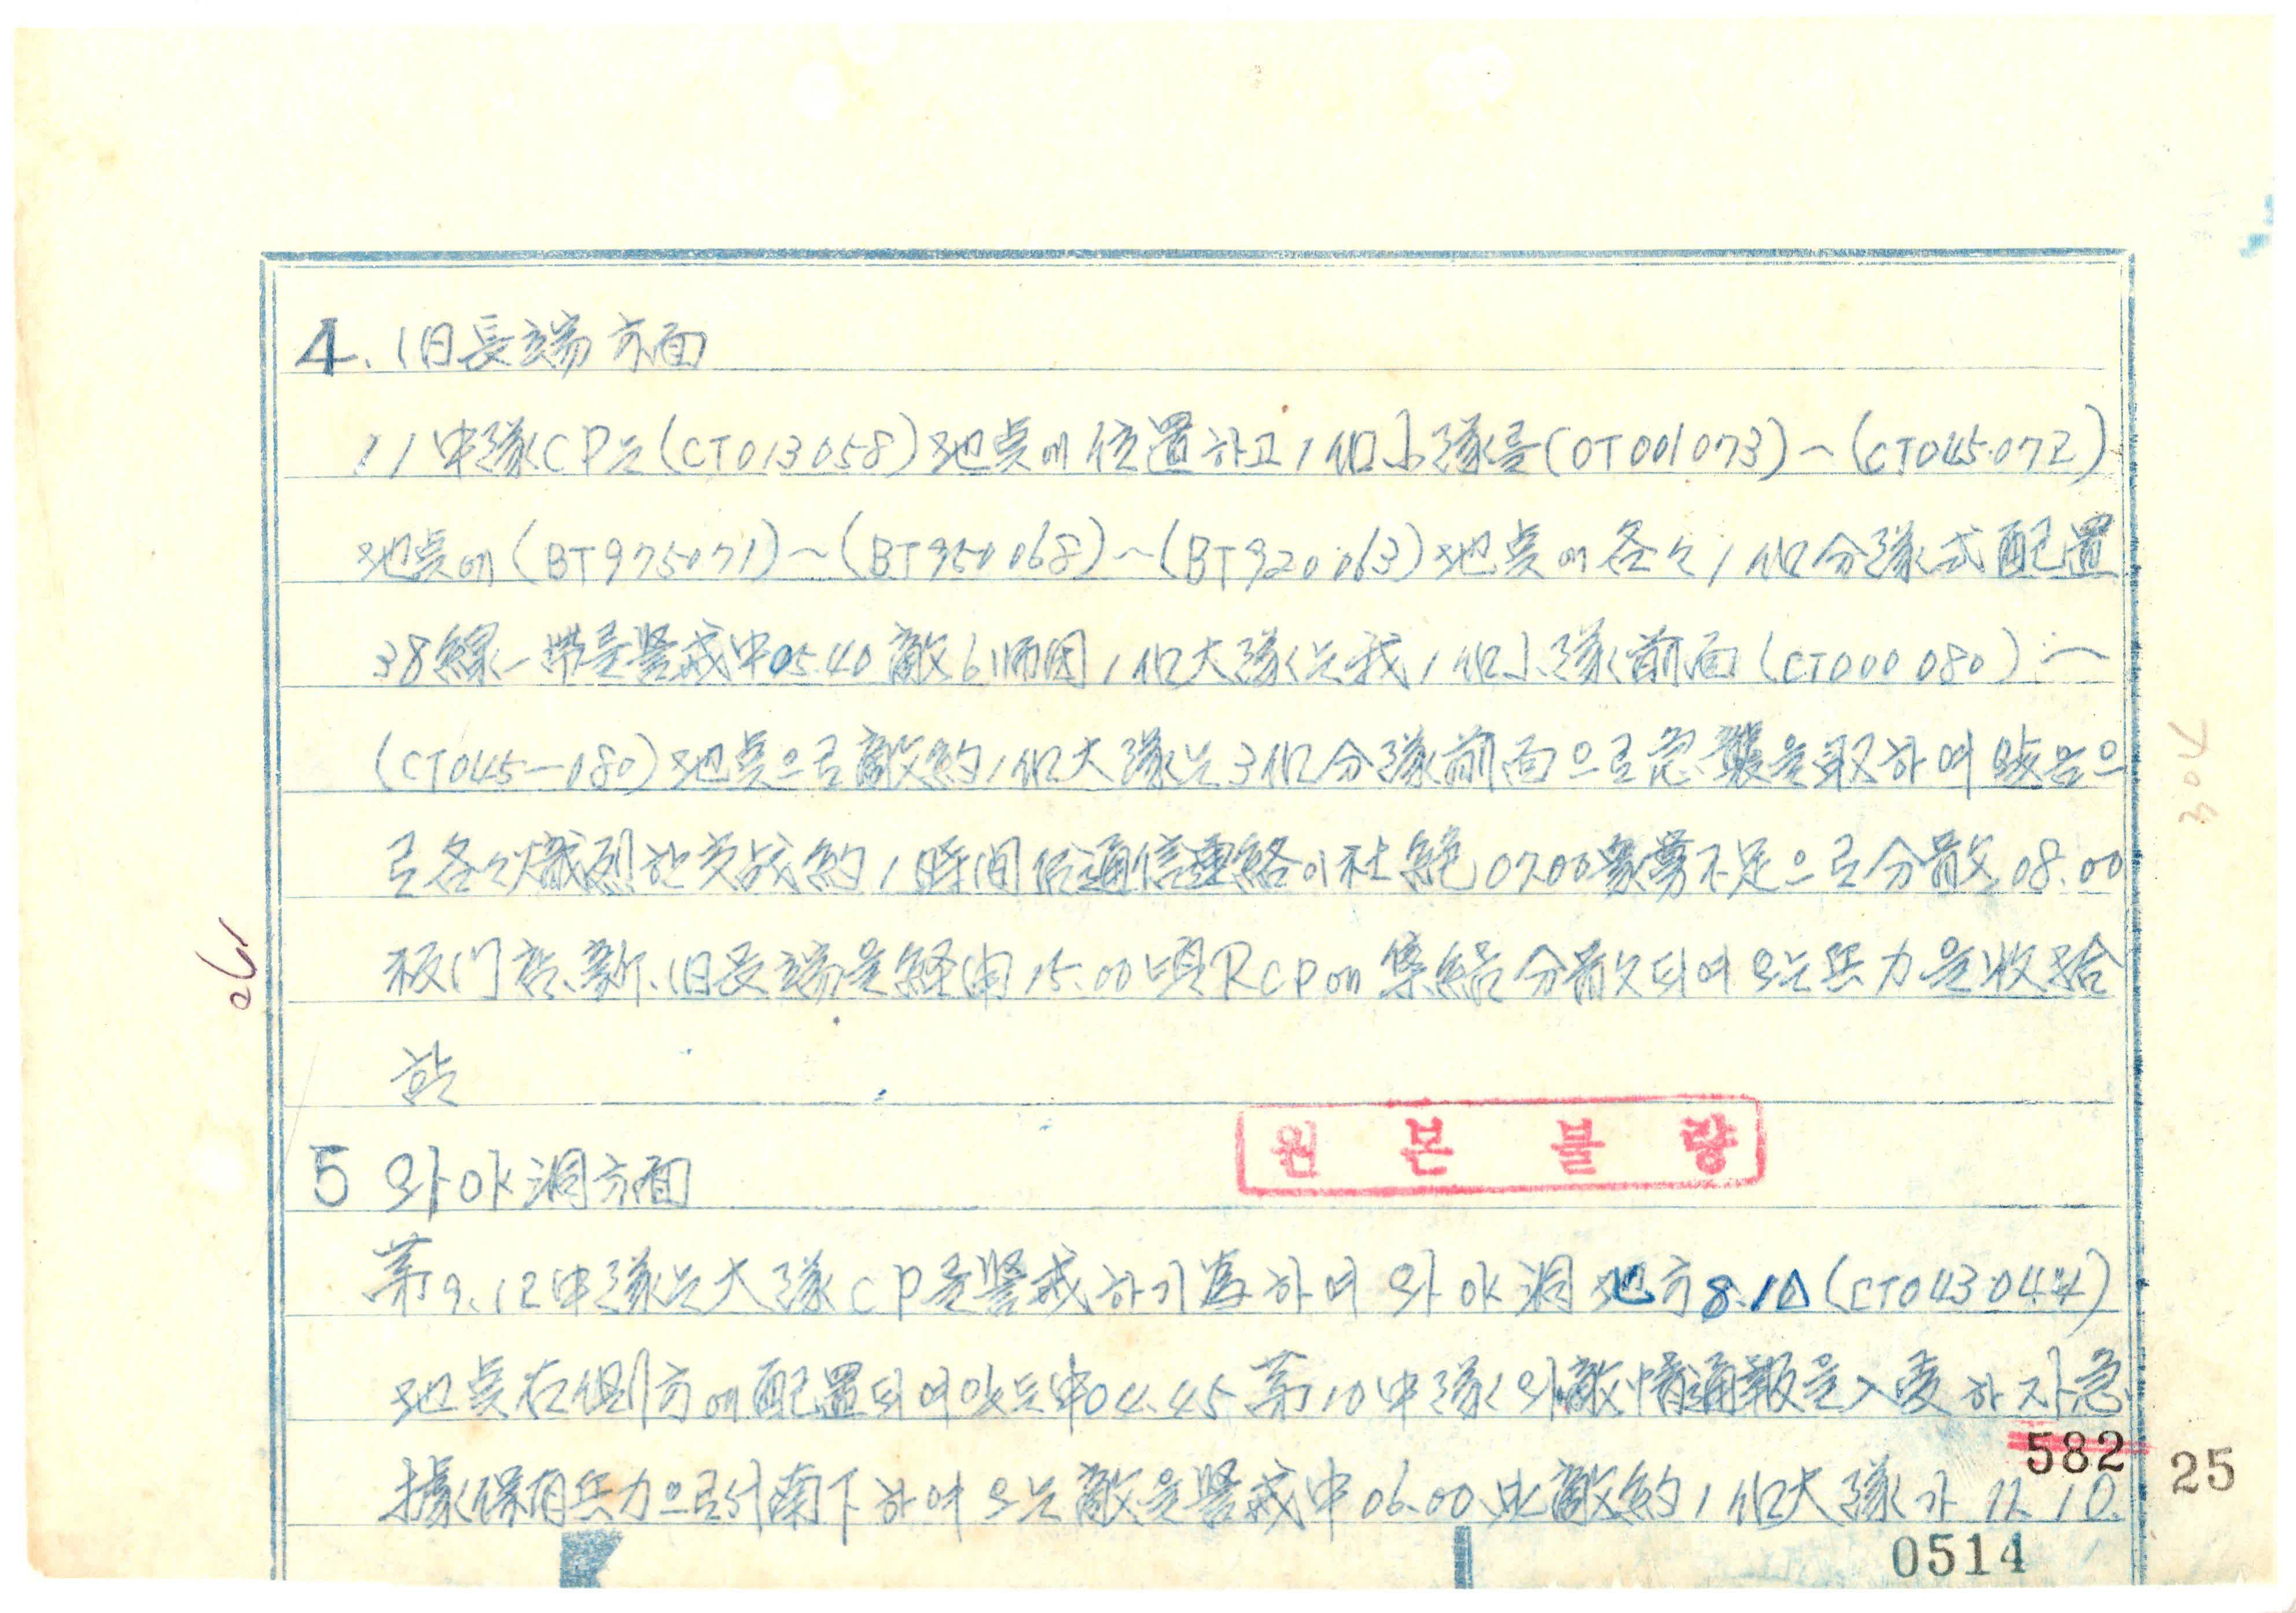 4. 旧長端方面
11中隊CP는(CT013058)地点에 位置하고 1個小隊를(OT001073)~(CT045.072)
地点에(BT975071)~(BT950068)~(BT920063)地点에 各々1個分隊式配置
38線一帶를警戒中05.40敵6師団1個大隊는我1個小隊前面(CT000080)~
(CT045-080)地点으로敵約1個大隊는3個分隊前面으로急襲을取하여
로各々熾烈한交战約1時間后通信連絡이杜絶0700彈薬不足으로分散08.00
板门店、新、旧長端을経由15.00頃RCP에集結分散되여오는兵力을收拾
함
원본불량
5 와야洞方面
第9.12中隊는大隊CP를警戒하기為하여와야洞地方8.10(CT043044)
地点右側方에配置되여있든中04.45第10中隊의敵情通報를入受하자急
據保有兵力으로서南下하여오는敵을警戒中06.00此敵約1個大隊가11.10.
582
25
0514
304